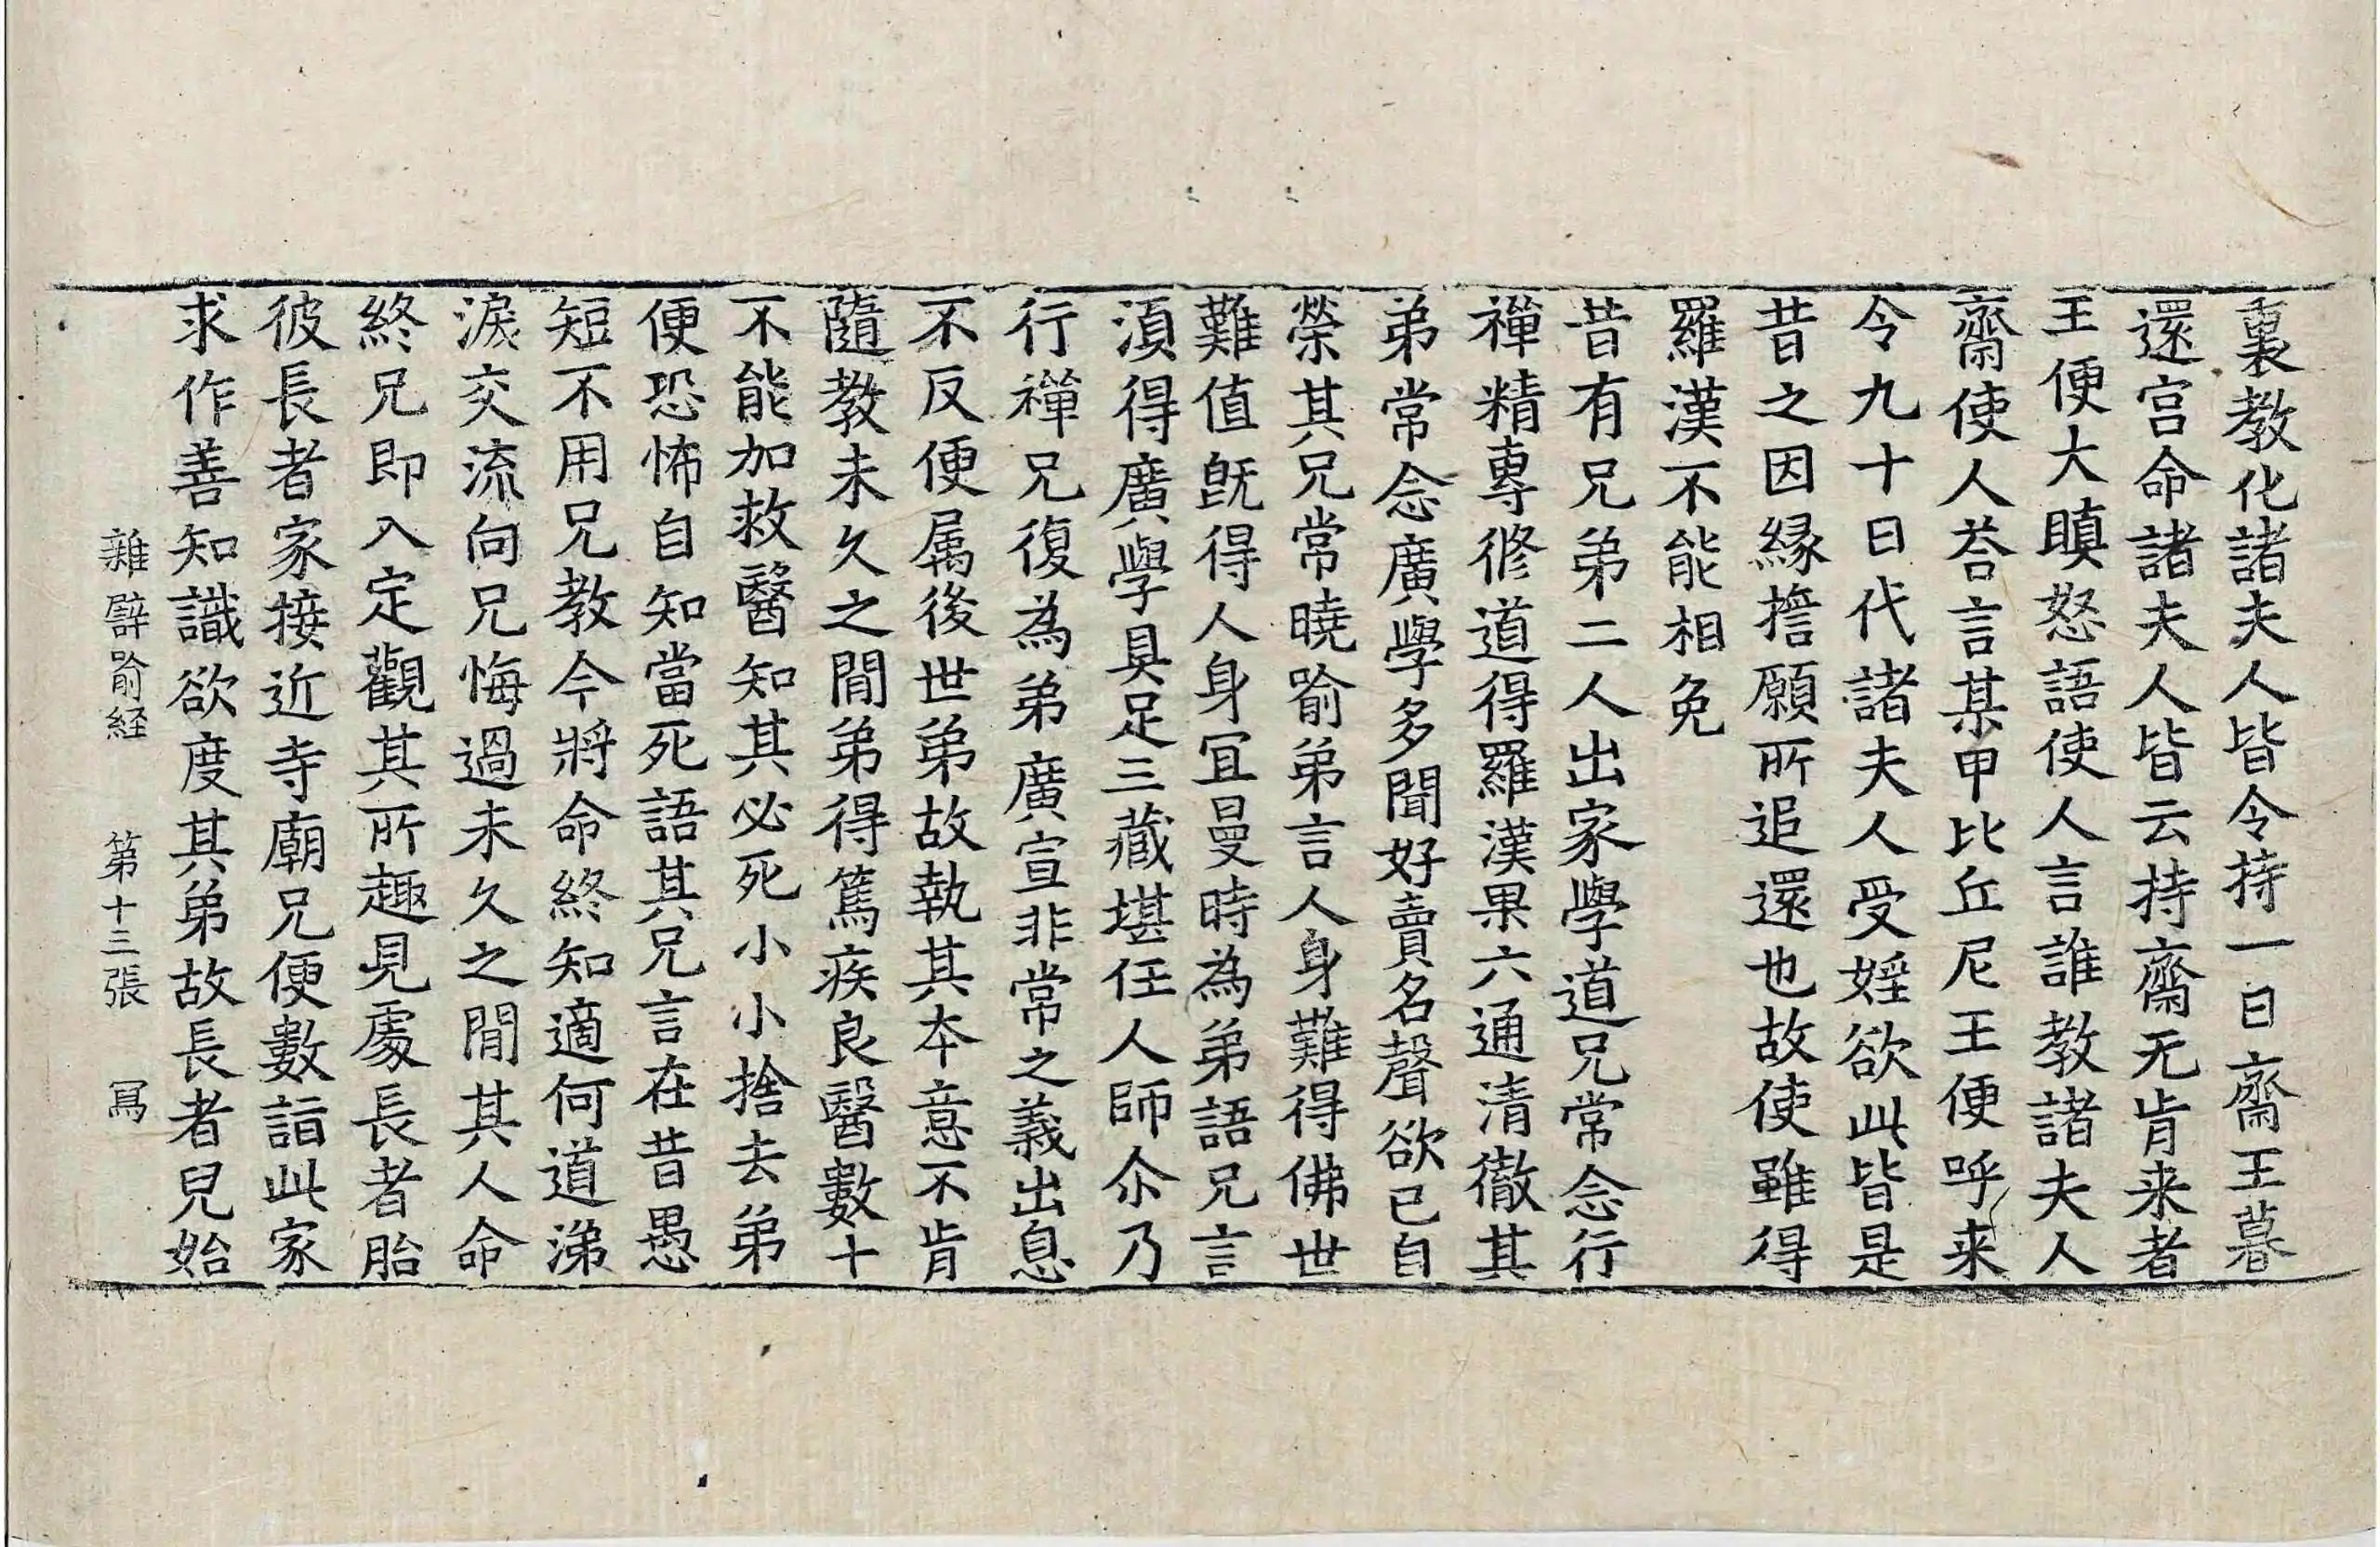 裏教化諸夫人皆令持一日齋王暮
還宮命諸夫人皆云持齋无肯来者
王便大瞋怒語使人言誰教諸夫人
齋使人荅言某甲比丘尼王便呼来
令九十日代諸夫人受婬欲此皆是
昔之因緣擔願所追還也故使雖得
羅漢不能相免
昔有兄弟二人出家學道兄常念行
禪精專修道得羅漢果六通清徹其
弟常念廣學多聞好賣名聲欲已自
榮其兄常曉喻弟言人身難得佛世
難值既得人身宜曼時為弟語兄言
湏得廣學具足三藏堪任人師尒乃
行禪兄復為弟廣宣非常之義出息
不反便属後世弟故執其本意不肯
隨教未久之間弟得篤疾良醫數十
不能加救醫知其必死小小捨去弟
便恐怖自知當死語其兄言在昔愚
短不用兄教今將命終知適何道涕
淚交流向兄悔過未久之間其人命
終兄即入定觀其所趣見處長者胎
彼長者家接近寺廟兄便數詣此家
求作善知識欲度其弟故長者兒始
雜譬喻経 第十三張 冩